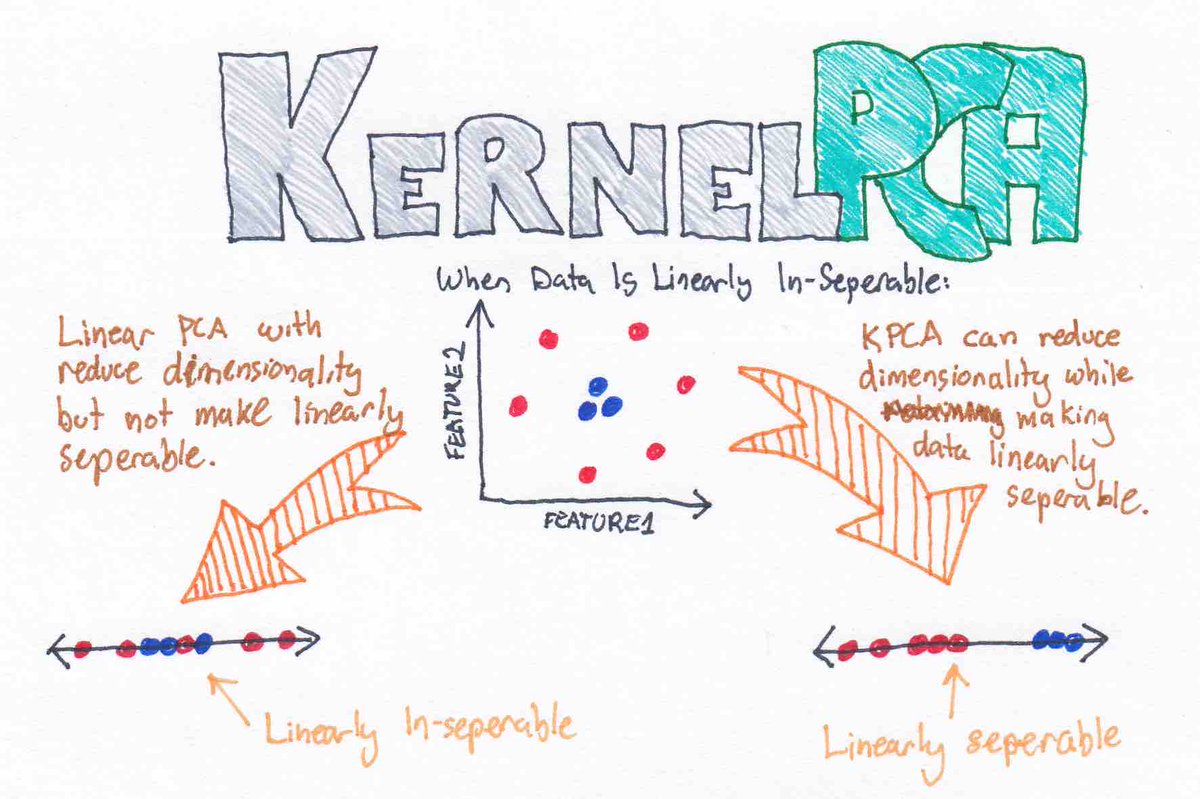 KERNEL PCA
When Data Is Linearly In-Seperable:
Linear PCA with
reduce dimensionality
but not make linearly
seperable.
FEATURE2
FEATURE1
KPCA can reduce
dimensionality while
making
data linearly
seperable.
Linearly In-seperable
Linearly seperable